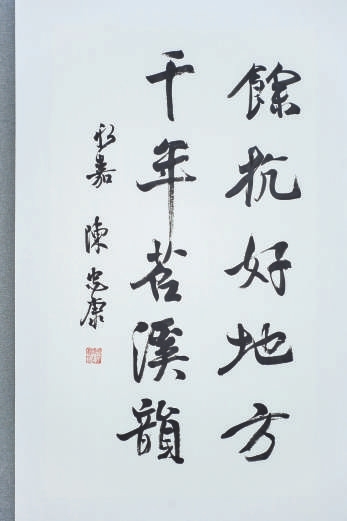 餘杭好地方
千年苕溪韻
永嘉 陳光康